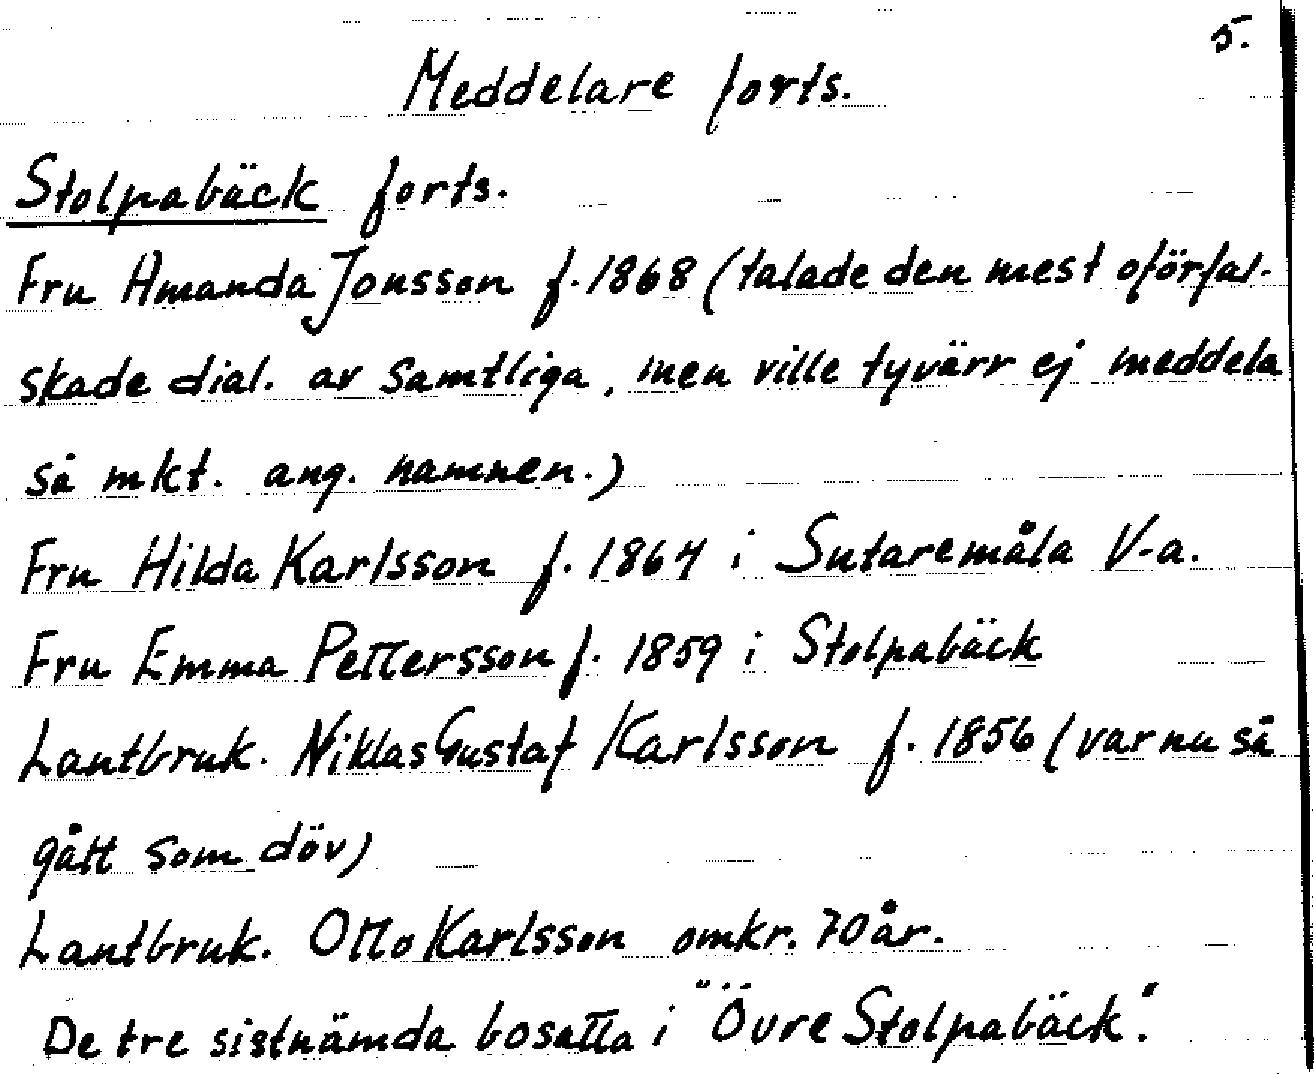 5.
Meddelare forts.
Stolpabäck forts.
Fru Amanda Jonsson f. 1868 (talade den mest oförfal-
skade dial. av samtliga, men ville tyvärr ej meddela
så mkt. ang. namnen.)
Fru Hilda Karlsson f. 1864 i Sutaremåla V-a.
Fru Emma Pettersson f. 1859 i Stolpabäck
Lantbruk. Niklas Gustaf Karlsson f. 1856 (var nu så
gått som döv)
Lantbruk. Otto Karlsson omkr. 70 år.
De tre sistnämda bosatta i "Övre Stolpabäck".